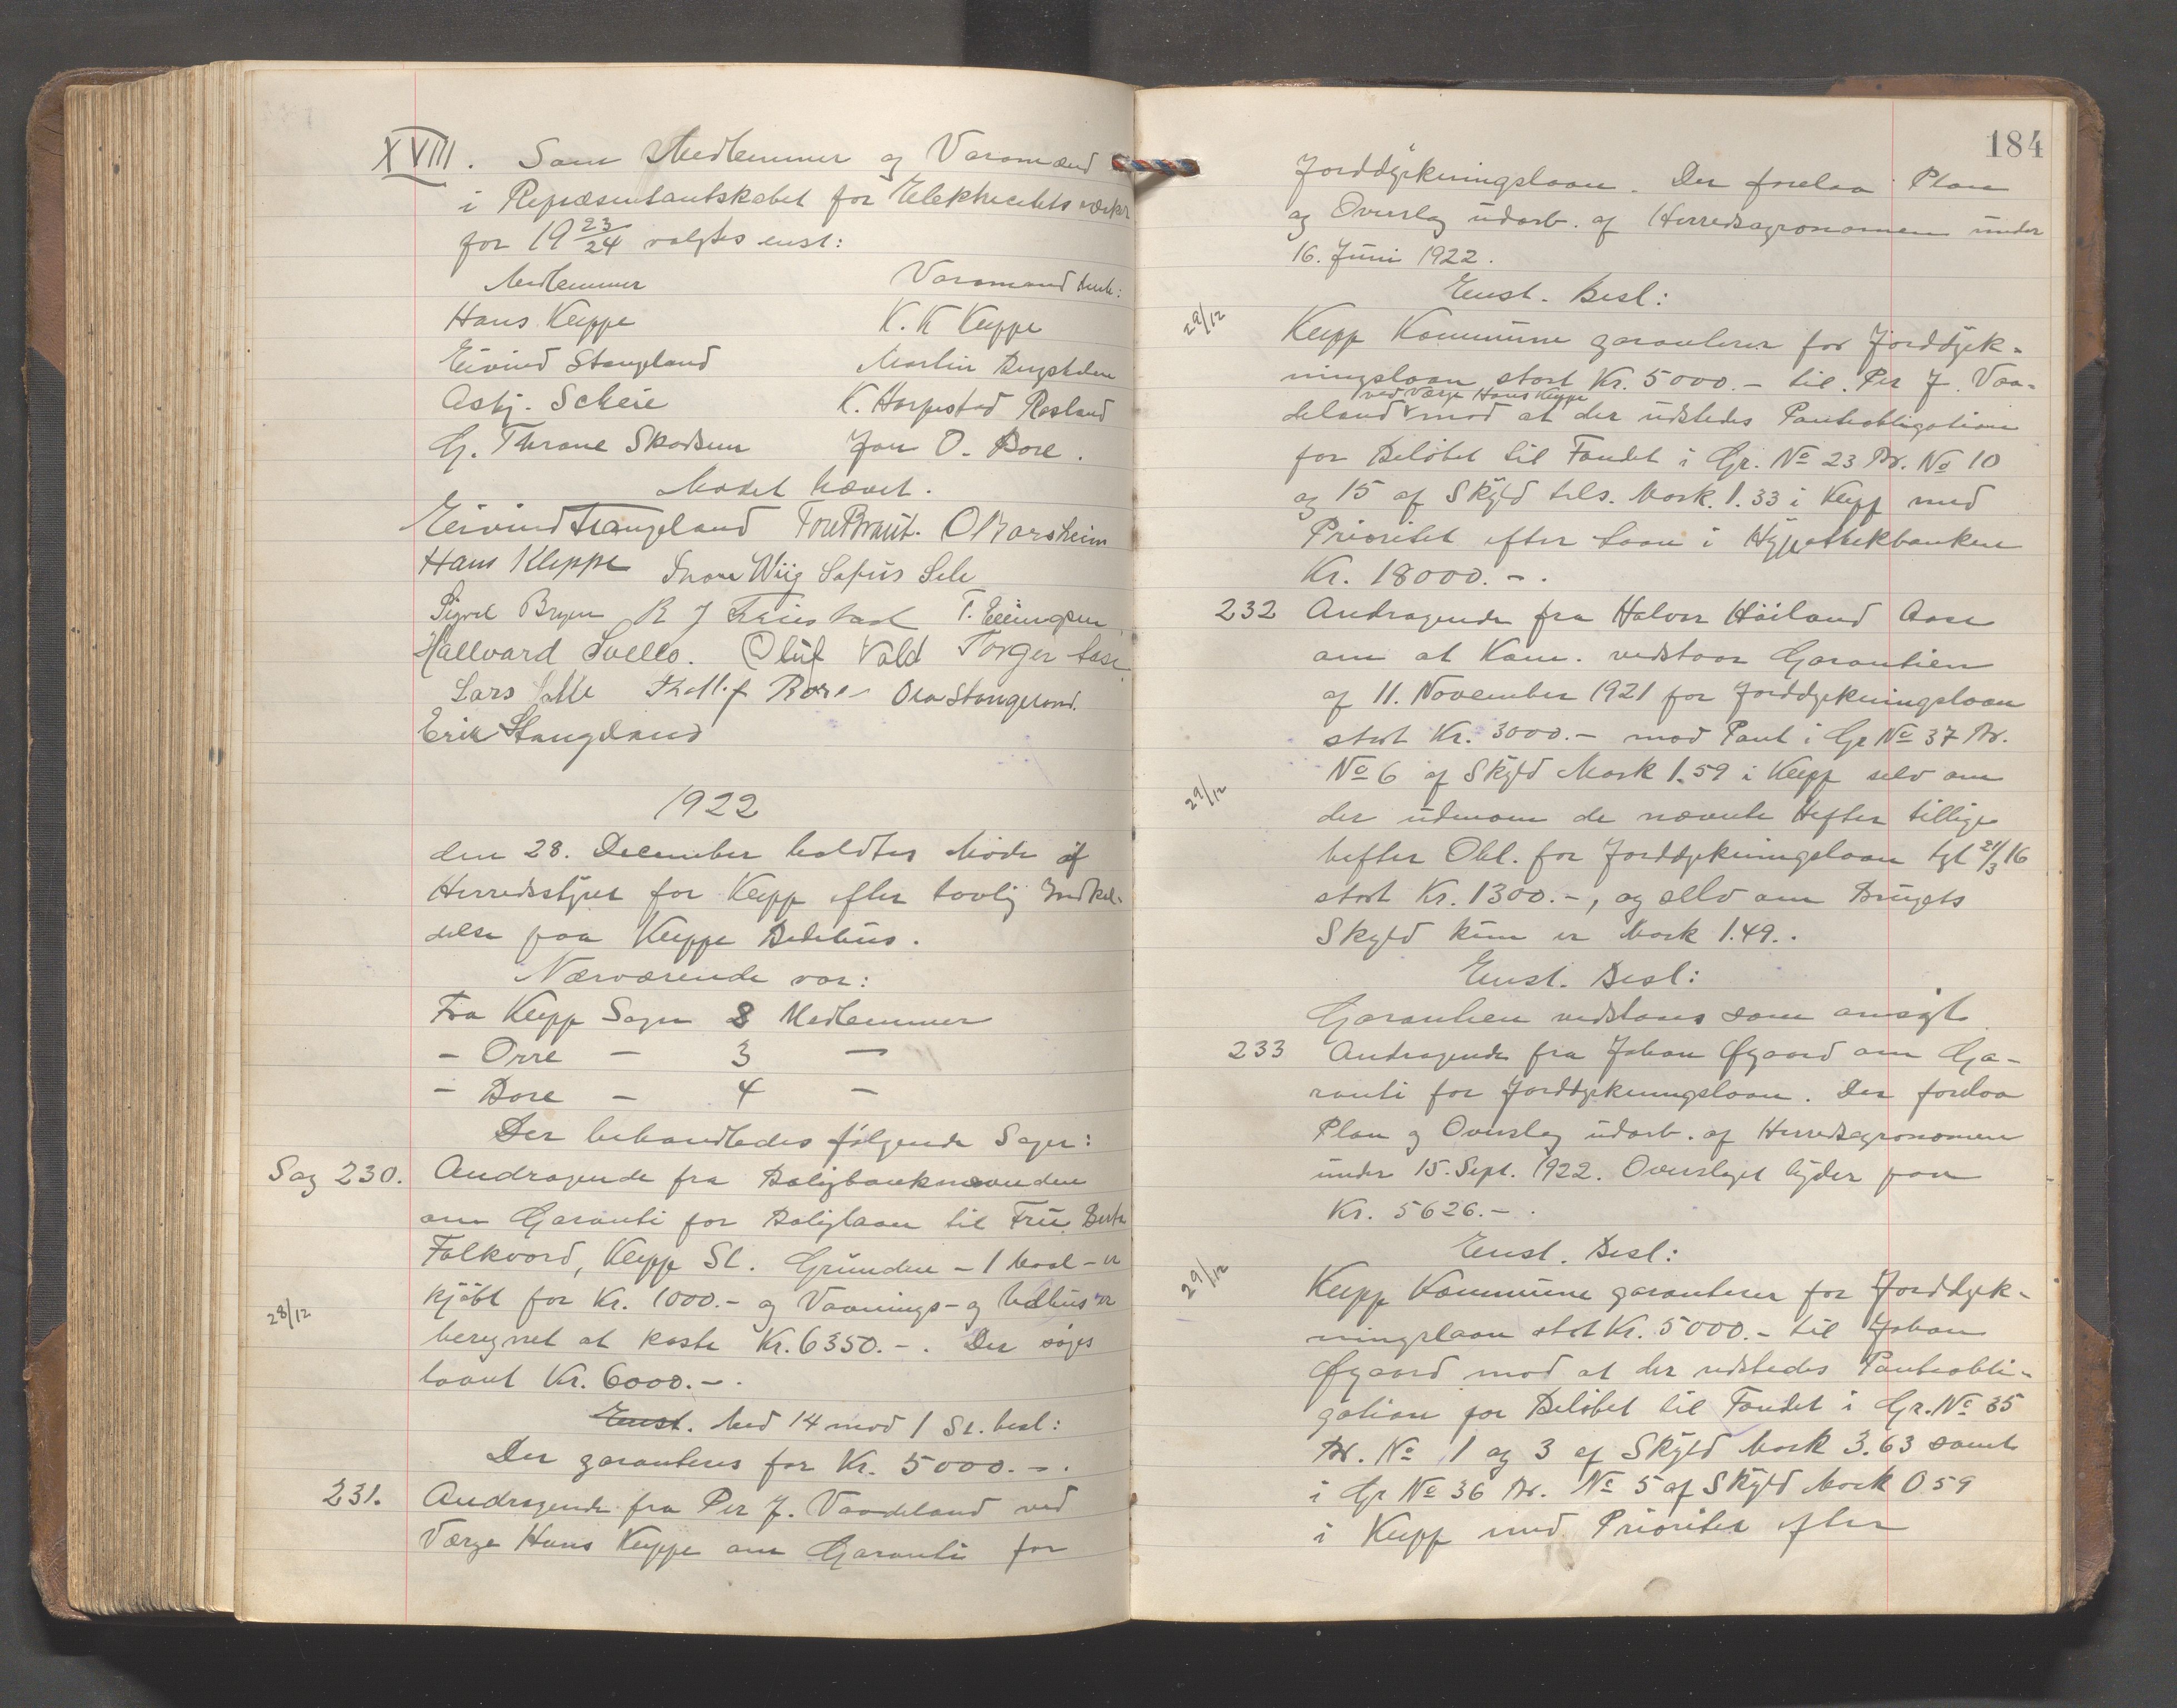 XVIII. Som Medlemmer og Varamænd
i Repræsentantskabet for Elektricitetsverket
for 19 23/24 valgtes enst:
Medlemmer Varamænd
Hans Kleppe K. K Kleppe
Eivind Stangeland Martin
Asbj. Scheie K. Harpestad Rosland
G. Thrane Skadsem Jon O. Bore.
Mødet hævet.
Eivind Stangeland Tore Braut. O Varsheim
Hans Kleppe Snorre Wiig Sofus Sele
Sigvel Bryne R J Friestad T. Ellingsen
Hallvard Svello. Oluf Vold Torger Aase
Lars Salte Thollf Bore Ola Stangeland.
Erik Stangeland
1922
den 28. December holdtes Møde af
Herredsstyret for Klepp efter lovlig Indkal-
delse paa Kleppe Bedehus.
Nærværende var:
Fra Klepp Sogn 8 Medlemmer
- Orre - 3 -
- Bore - 4 -
Der behandledes følgende Sager:
Sag 230. Andragende fra Boligbanknævnden
om Garanti for Boliglaan til Fru Berta
Folkvord, Klepp St. Grunden - 1 Maal - er
28/12 kjøbt for Kr. 1000.- og Vaanings- og Udhus er
beregnet at koste Kr. 6350.-. Der søges
laant Kr. 6000.-.
Enst. Med 14 mod 1 St. besl:
Der garanteres for Kr. 5000.-.
231. Andragende fra Per J. Vaadeland ved
Værge Hans Kleppe om Garanti for
184
Jorddyrkningslaan. Der forelaa Plan
og Overslag udarb. af Herredsagronomen under
16. Juni 1922.
Enst. Besl:
29/12 Klepp Kommune garanterer for Jorddyrk-
ningslaan stort Kr. 5000.- til Per J. Vaa-
ved Værge Hans Kleppe
deland mod at der udstedes Panteobligation
for Beløbet til Fondet i Gr. No 23 Br. No 10
og 15 af Skyld tils. Mark. 1.33 i Klepp med
Prioritet efter Laan i Hypothekbanken
Kr. 18000.-.
232 Andragende fra Halvor Høiland Aase
om at Kom. vedstaar Garantien
af 11. November 1921 for Jorddyrkningslaan
stort Kr. 3000.- mod Pant i Gr No 37 Br.
No 6 af Skyld Mark 1.59 i Klepp selv om
29/12 der udenom de nævnte Hefter tillige
hefter Obl. for Jorddyrkningslaan tgl 21/3 16
stort Kr. 1300.-, og selv om Brugets
Skyld kun er Mark 1.49.
Enst. Besl:
Garantien vedstaaes som ansøgt
233 Andragende fra Johan Øgaard om Ga-
ranti for Jorddyrkningslaan. Der forelaa
Plan og Overslag udarb. af Herredsagronomen
under 15. Sept. 1922. Overslaget lyder paa
Kr. 5626.-.
Enst. Besl:
29/12 Klepp Kommune garanterer for Jorddyrk-
ningslaan stort Kr. 5000.- til Johan
Øgaard mod at der udstedes Panteobli-
gation for Beløbet til Fondet i Gr. No 35
Br. No 1 og 3 af Skyld Mark 3.63 samt
i Gr No 36 Br. No 5 af Skyld Mark 0 59
i Klepp med Prioritet efter